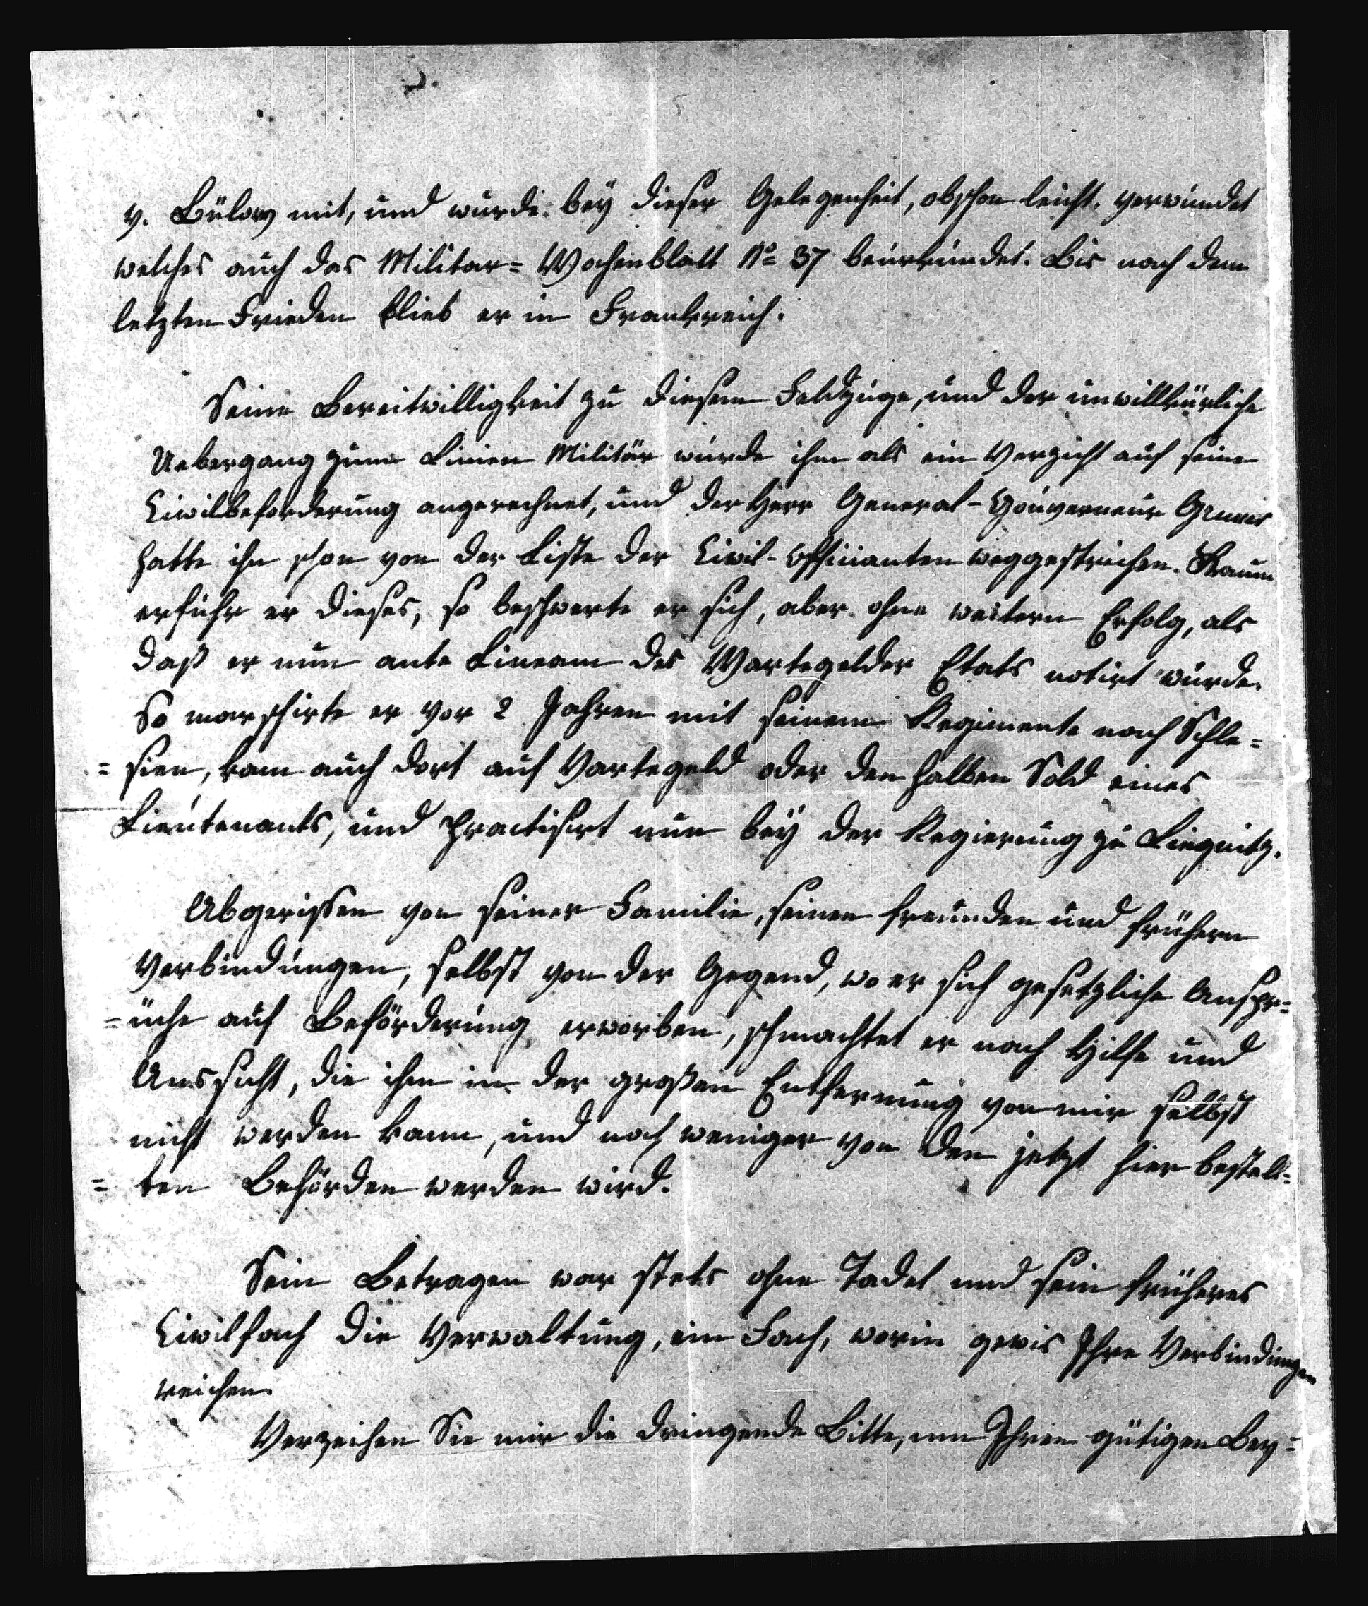 v. Bülow mit, und wurde bey dieser Gelegenheit, obschon leicht, verwundet
welches auch das Militar= Wochenblatt No 37 beurkundet. Bis nach dem
letzten Frieden blieb er in Frankreich.
Seine Bereitwilligkeit zu diesem Feldzuge, und der unwillkürliche
Uebergang zum Linien Militär wurde ihm als ein Verzicht auf seine
Civilbeforderung angerechnet, und der Herr General-Gouverneur
hatte ihn schon von der Liste der Civil-Officianten weggestrichen. Kaum
erfuhr er dieses, so beschwerte er sich, aber ohne weitern Erfolg, als
daß er nun ante Lineam des Wartegelder Etats notirt wurde.
So marschirte er vor 2 Jahren mit seinem Regimente nach Schle=
=sien, kam auch dort auf Wartegeld oder den halben Sold eines
Lieutenants, und practisirt nun bey der Regierung zu Liegnitz.
Abgerissen von seiner Familie, seinen Freunden und frühern
Verbindungen, selbst von der Gegend, wo er sich gesetzliche Anspr=
=üche auf Beförderung erworben, schmachtet er nach Hilfe und
Aussicht, die ihm in der großen Entfernung von mir selbst
nicht werden kann, und noch weniger von den jetzt hier bestell=
=ten Behörden werden wird.
Sein Betragen war stets ohne Tadel und sein früheres
Civilfach die Verwaltung, ein Fach, worin gewis Ihre Verbindungen
reichen
Verzeihen Sie mir die dringende Bitte, um Ihren gütigen Bey=